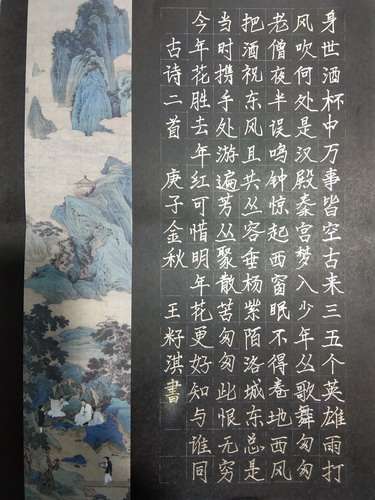 身世酒杯中万事皆空古来三五个英雄雨打
风吹何处是汉殿秦宫梦入少年丛歌舞匆匆
老僧夜半误鸣钟惊起西窗眠不得卷地西风
把酒祝东风且共丛容垂杨紫陌洛城东总是
当时携手处游遍芳丛聚散苦匆匆此恨无穷
今年花胜去年红可惜明年花更好知与谁同
古诗二首 庚子金秋 王籽淇書